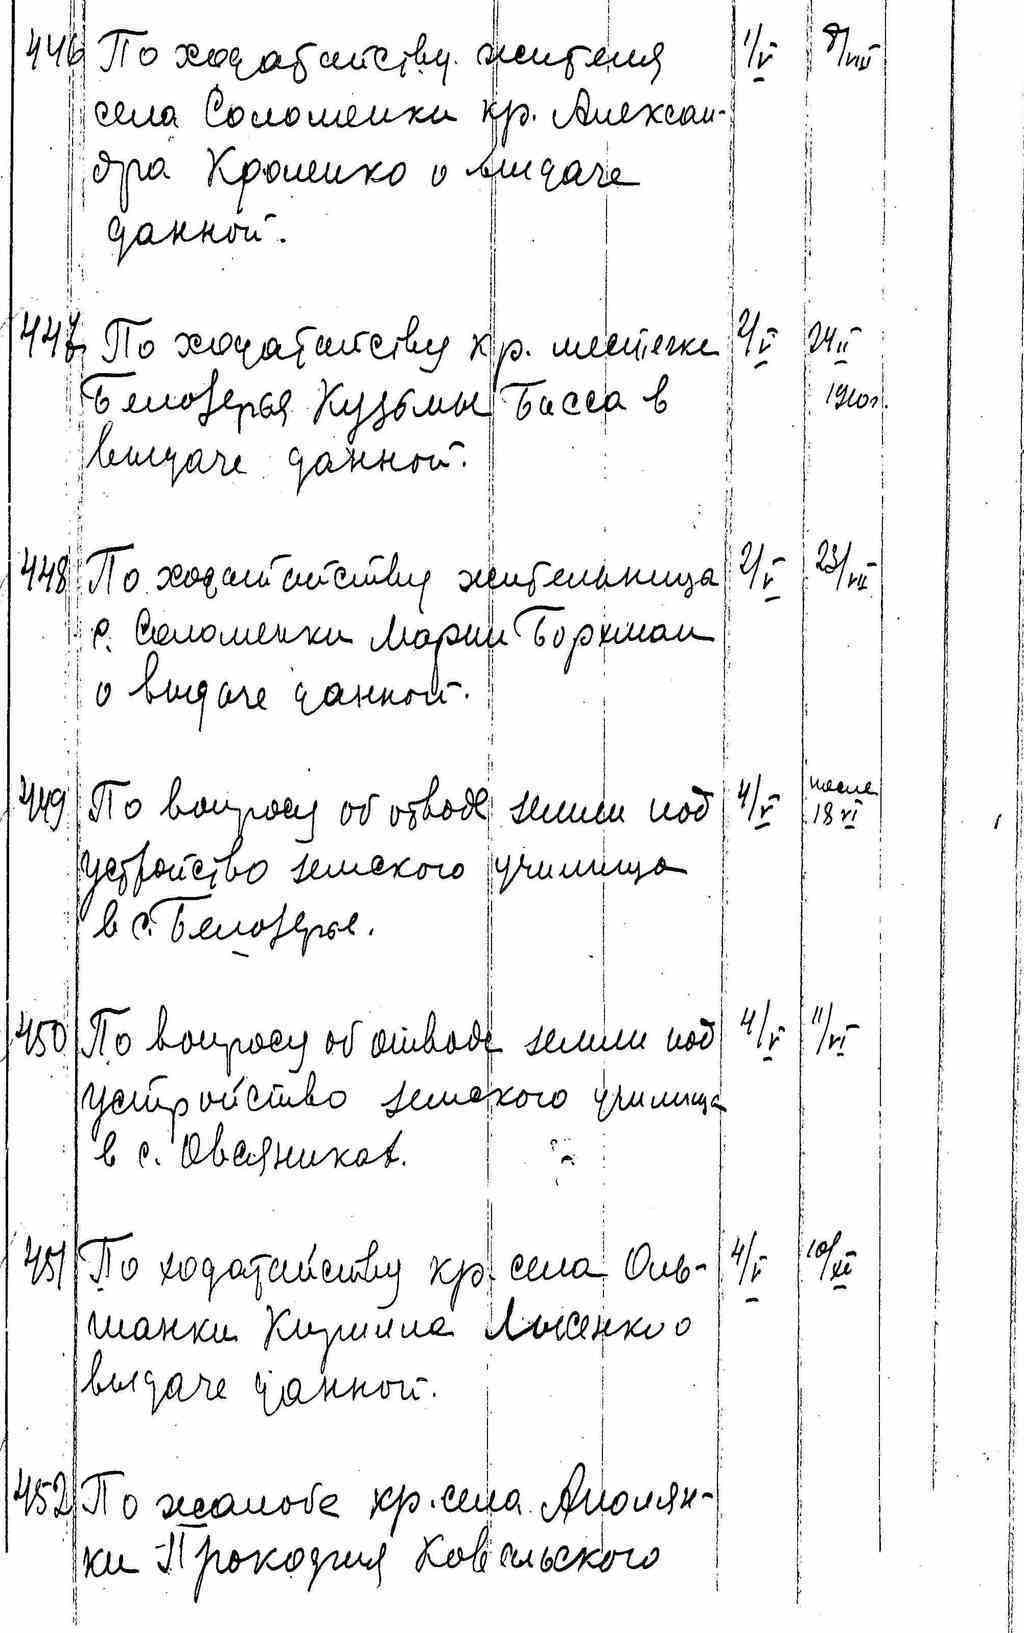 446 По ходатайству жителя 1/V 8/VIII
села Соломенки кр. Алексан-
дра Кроленко о выдаче
данной.
447 По ходатайству кр. местечка 2/V 24 II
Белозерья Кузьмы Басса в 1910г.
выдаче данной.
448 По ходатайству жительница 2/V 23/VII
с. Соломенки Марии Борхман
о выдаче данной.
449 По вопросу об отводе земли под 4/V после
устройство земского училища 18 VI
в с. Белозерье.
450 По вопросу об отводе земли под 4/V 11/VI
устройство земского училища
в с. Овсяниках.
451 По ходатайству кр. села Оль- 4/V 10/XI
шанки Кирилла Лысенко о
выдаче данной.
452 По жалобе кр. села Аполян-
ки Прокофия Ковальского